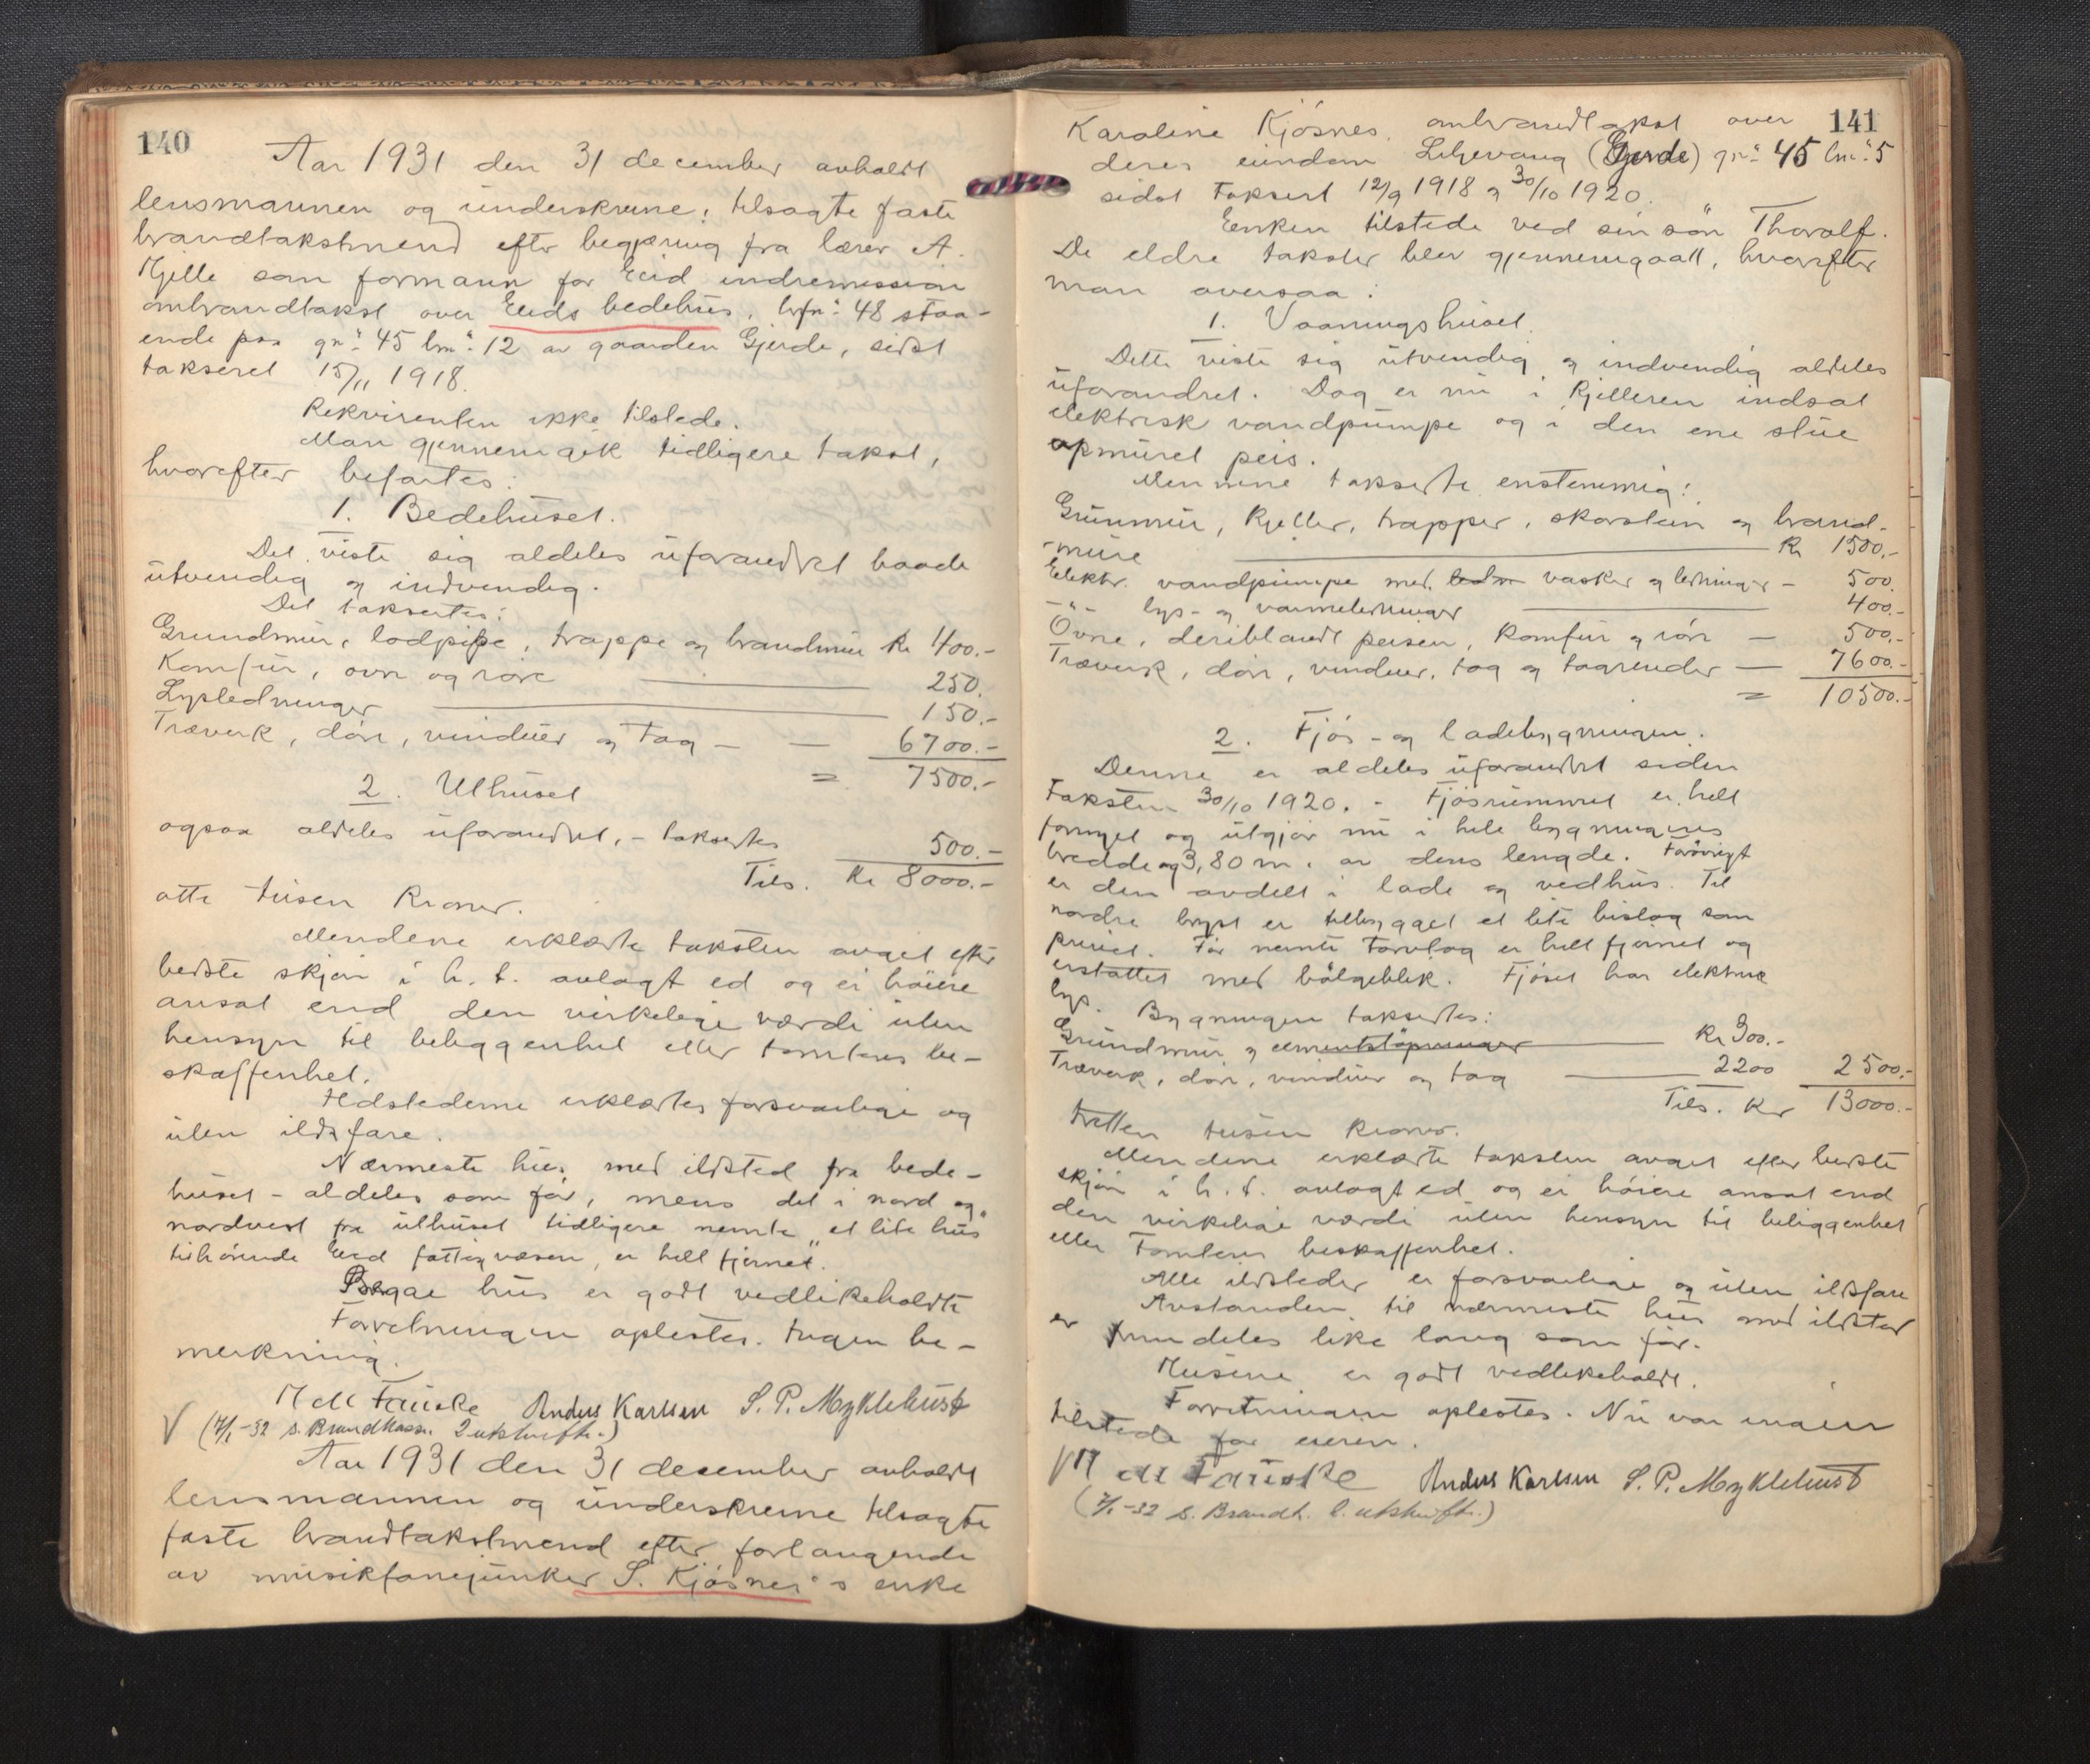 140
Aar 1931 den 31 december avholdt
lensmannen og underskrevne, tilsagte faste
brandtakstmend efter begjæring fra lærer A.
Hjelle som formann for Eid indremission
ombrandtakst over Eids bedehus, brfnº 48 staa-
ende paa gnº 45 bnº 12 av gaarden Gjerde, sidst
takseret 15/11 1918.
Rekvirenten ikke tilstede.
Man gjennemgik tidligere takst,
hvorefter befartes:
1. Bedehuset.
Det viste sig aldeles uforandret baade
utvendig og indvendig.
Det taksertes:
Grundmur, lodpipe, trappe og brandmur Kr 400.-
Komfur, ovn og rör 250.
Lysledninger 150.-
Træverk, dörr, vinduer og tag - — 6700.-
= 7500.-
2. Uthuset
ogsaa aldeles uforandret, - takseres 500.-
Tils. Kr 8000.-
otte tusen kroner.
Mendene erklærte taksten avget efter
bedste skjön i h. t. avlagt ed og ei höiere
ansat end den virkelige værdi uten
hensyn til beliggenhet eller tomtens be-
skaffenhet.
Ildstederne erklærtes forsvarlige og
uten ildsfare.
Nærmeste hus med ildsted fra bede-
huset - aldeles som för, mens det i nord og
nordvest fra uthuset tidligere nemte "et lite hus"
tilhörende Eid fattigvæsen, er helt fjernet.
Begge hus er godt vedlikeholdte
Forretningen oplestes. Ingen be-
merkning.
M M Fauske Anders Karlsen S. P. Myklebust
V (7/1-32 s. Brandkassn. 2 utskrifter.)
Aar 1931 den 31 desember avholdt
lensmannen og underskrevne tilsagte
faste brandtakstmend efter forlangende
av musikfanejunker S. Kjósnes's enke
141
Karoline Kjósnes. ombrandtakst over
deres eiendom Liljevang (Gjerde) gnº 45 bnº 5
sidst taksert 12/9 1918 og 30/10 1920.
Enken tilstede ved sin sön Thoralf.
De eldre takster blev gjennemgaatt, hvorefter
man oversaa:
1. Vaaningshuset.
Dette viste sig utvendig og indvendig aldeles
uforandret. Dog er nu i kjelleren indsat
elektrisk vandpumpe og i den ene stue
opmuret peis.
Mennene takserte enstemmig:
Grunmur, kjeller, trapper, skorstein og brand-
-mure Kr 1500.-
Elektr. vandpumpe med vasker og ledninger - 500.
-"- lys- og varmeledninger 400.-
Ovne, deriblandt peisen, komfur og rör — 500.-
Træverk, dörr, vinduer, tag og tagrender — 7600.-
= 10500.-
2. Fjös- og ladebygningen.
Denne er aldeles uforandret siden
taksten 30/10 1920. - Fjösrummet er helt
fornyet og utgjör nu i hele bygningens
bredde og 3,80 m. av dens lengde. Forövrigt
er den avdelt i lade og vedhus. Til
nordre bryst er tilbygget et lite bislag som
privet. För nemte torvtag er helt fjernet og
erstattet med bölgeblik. Fjöset har elektrisk
lys. Bygningen takseres:
Grundmur og cementstöpninger Kr 300.-
Træverk, dörr, vinduer og tag 2200 2500.-
Tils. Kr 13000.-
tretten tusen kroner.
Mendene erklærte taksten avget efter bedste
skjön i h. t. avlagt ed og ei höiere ansat end
den virkelige værdi uten hensyn til beliggenhet
eller tomtens beskaffenhet.
Alle ildsteder er forsvarlige og uten ildsfare
Avstanden til nærmeste hus med ildsted
er fremdeles like lang som för.
Husene er godt vedlikeholdt.
Forretningen oplestes. Nu var ingen
tilstede for eieren.
V M M Fauske Anders Karlsen S. P. Myklebust
(7/1-32 s. Brandk. 2. utskrift.)